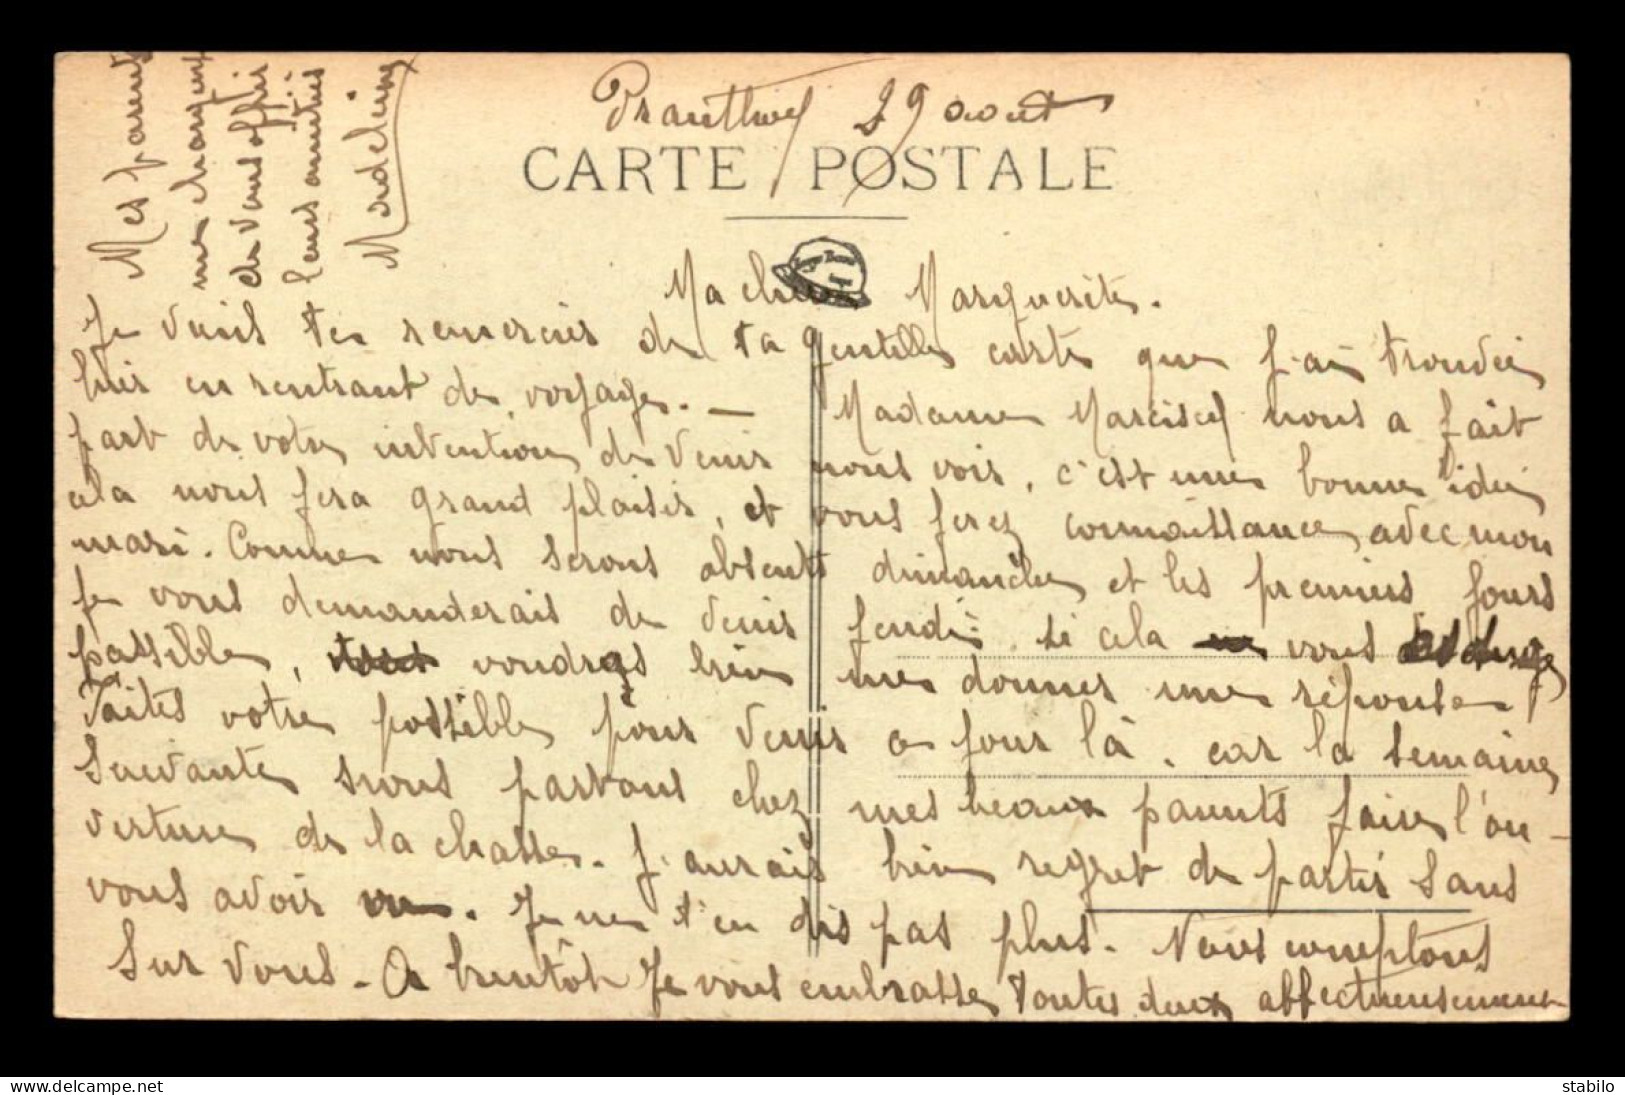 Pranthoy 29 août
CARTE POSTALE
Ma chère Marguerite.
Je viens te remercier de ta gentille carte que j'ai trouvée
hier en rentrant de voyage. — Madame Marcisey nous a fait
part de votre intention de venir nous voir, c'est une bonne idée
cela nous fera grand plaisir, et vous ferez connaissance avec mon
mari. Comme nous serons absents dimanche et les premiers jours
je vous demanderais de venir jeudi: si cela vous est
possible, voudras bien me donner une réponse!
Faites votre possible pour venir ce jour là. car la semaine
suivante nous partons chez mes beaux parents faire l'ou-
verture de la chasse. J'aurais bien regret de partir sans
vous avoir vu. Je ne t'en dis pas plus. Nous comptons
sur vous. A bientôt Je vous embrasse toutes deux affectueusement
Mes parents
me chargent
de vous offrir
leurs amitiés
Madeleine
www.delcampe.net
stabilo